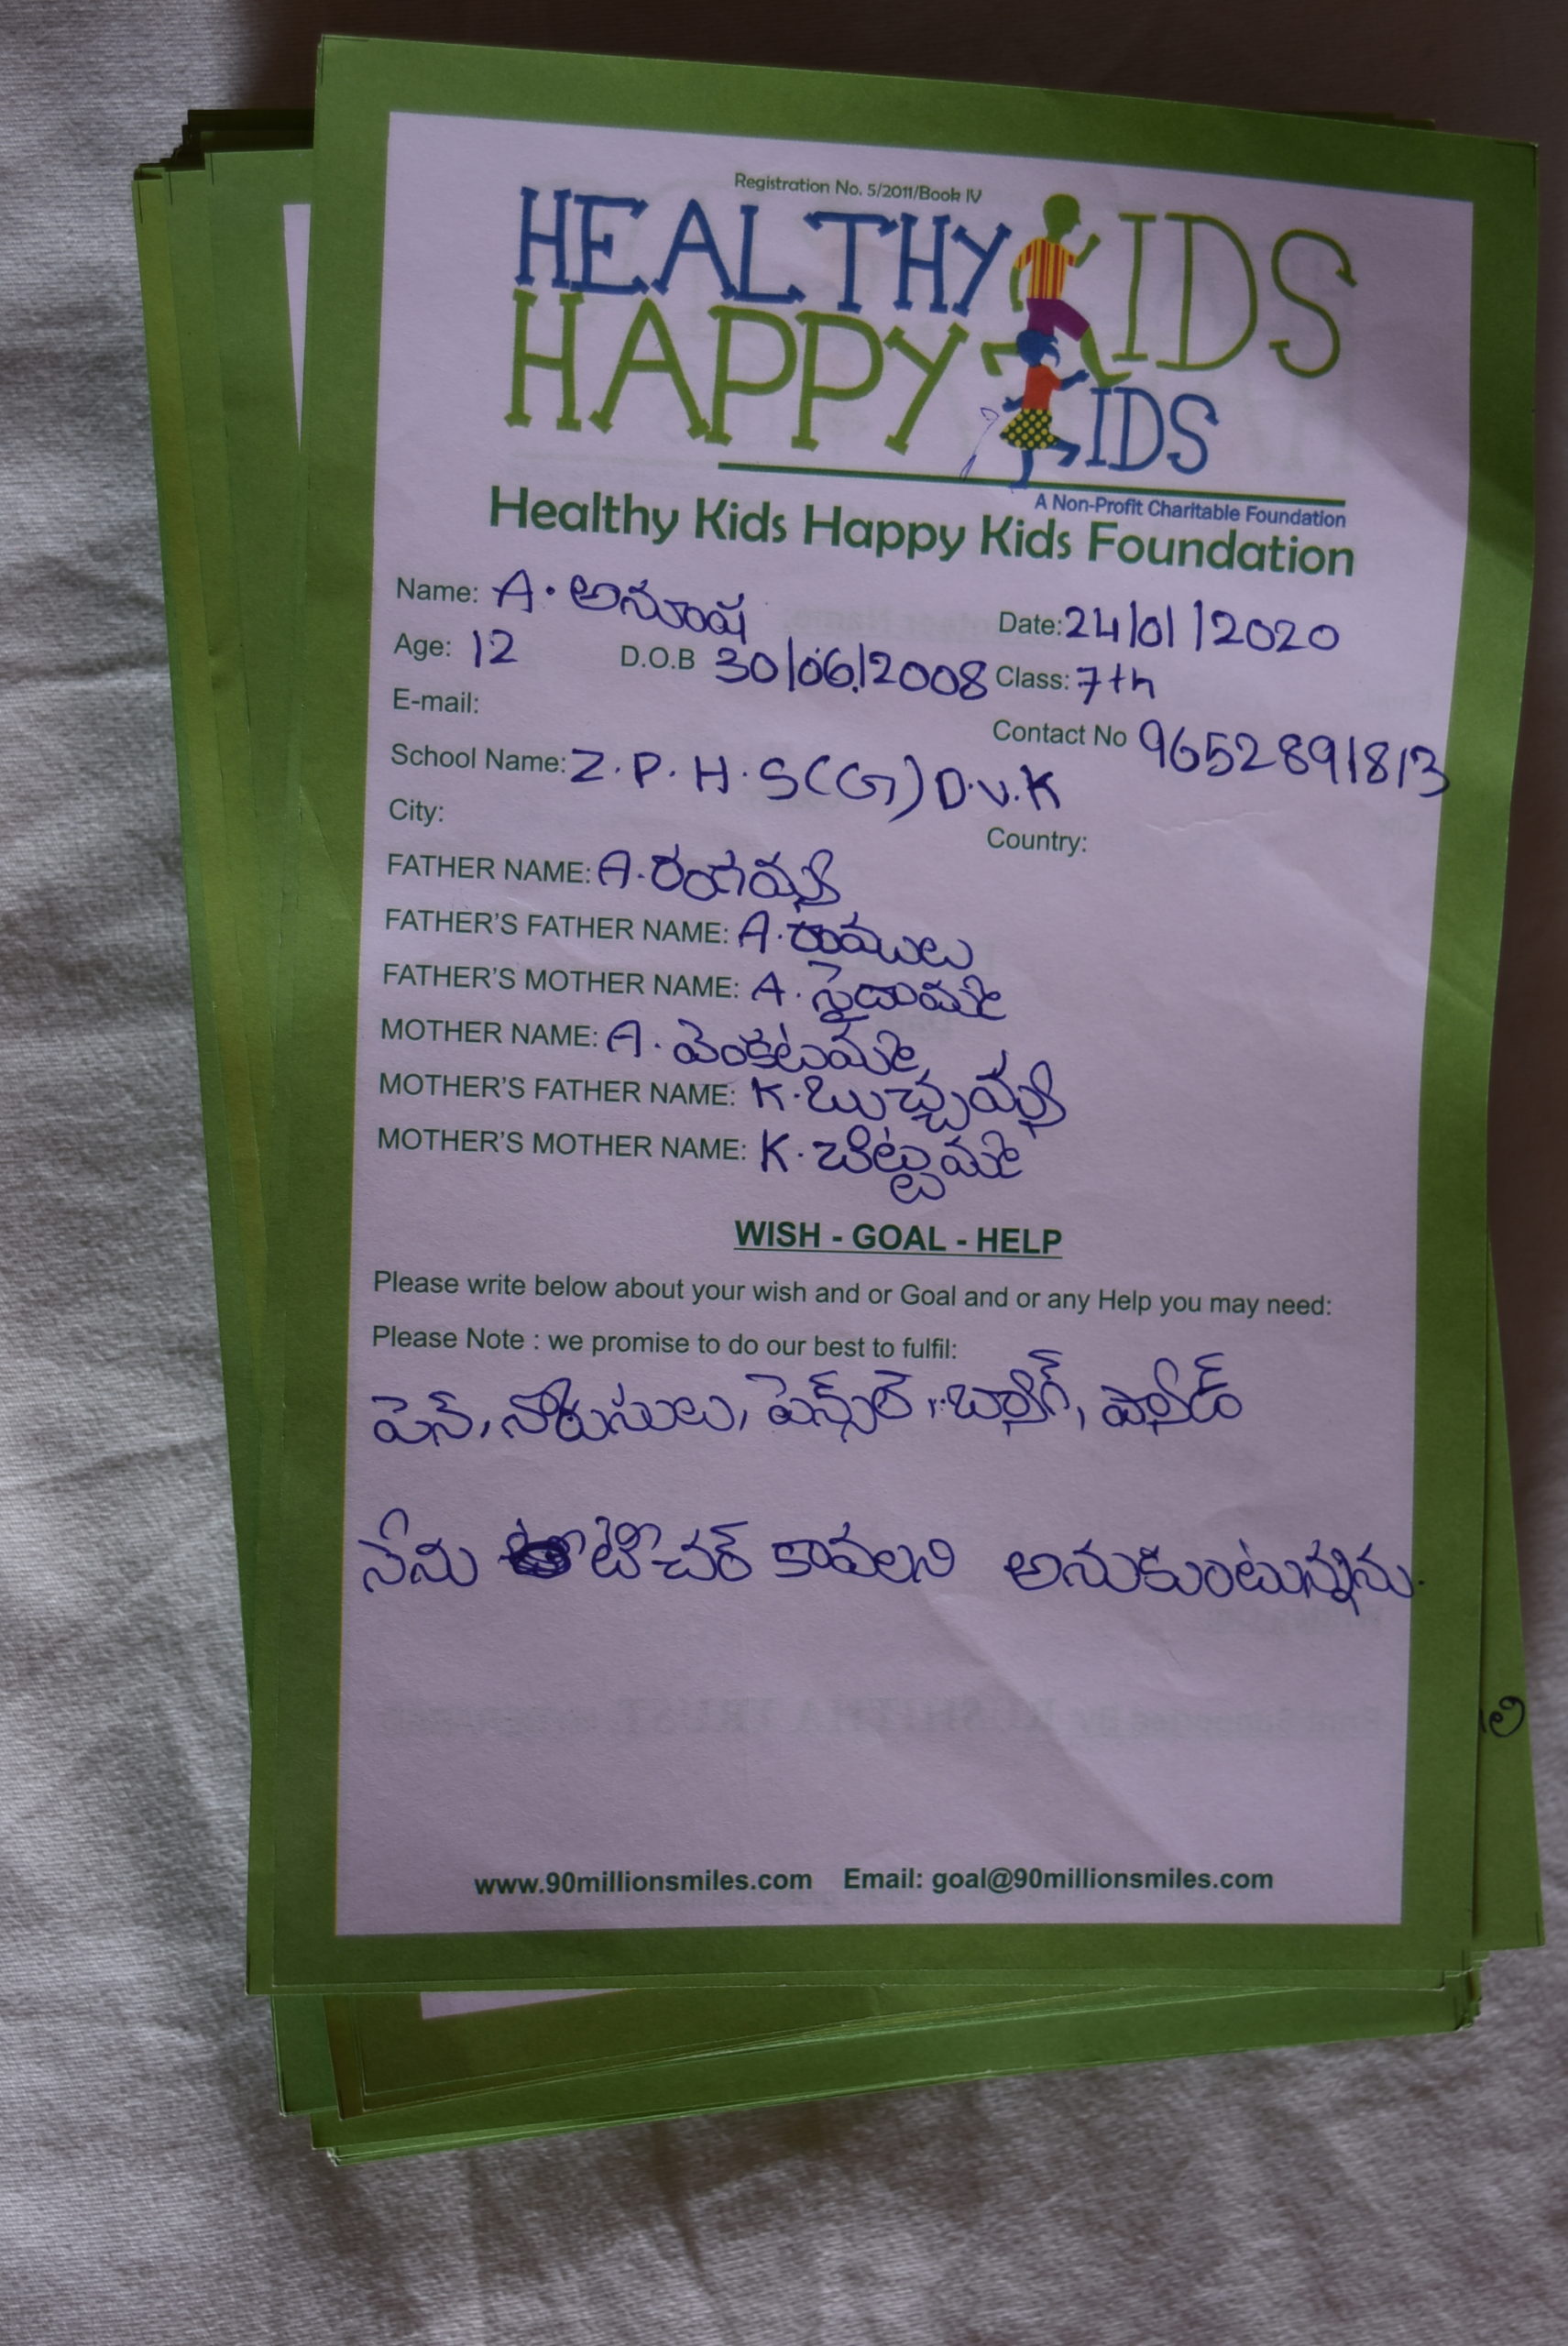 Registration No. 5/2011/Book IV
HEALTHY KIDS
HAPPY KIDS
A Non-Profit Charitable Foundation
Healthy Kids Happy Kids Foundation
Name: A. అనూష Date: 24/01/2020
Age: 12 D.O.B 30/06/2008 Class: 7th
E-mail:
Contact No 9652891813
School Name: Z.P.H.S(G) D.V.K
City:
Country:
FATHER NAME: A. రంగయ్య
FATHER'S FATHER NAME: A. రాములు
FATHER'S MOTHER NAME: A. సైదామ్మ
MOTHER NAME: A. వెంకటమ్మ
MOTHER'S FATHER NAME: K. బుచ్చయ్య
MOTHER'S MOTHER NAME: K. చిట్టమ్మ
WISH - GOAL - HELP
Please write below about your wish and or Goal and or any Help you may need:
Please Note : we promise to do our best to fulfil:
పెన్, పెన్సిల్, బ్యాగ్, ప్యాడ్
నేను టీచర్ కావలని అనుకుంటున్నను.
www.90millionsmiles.com Email: goal@90millionsmiles.com